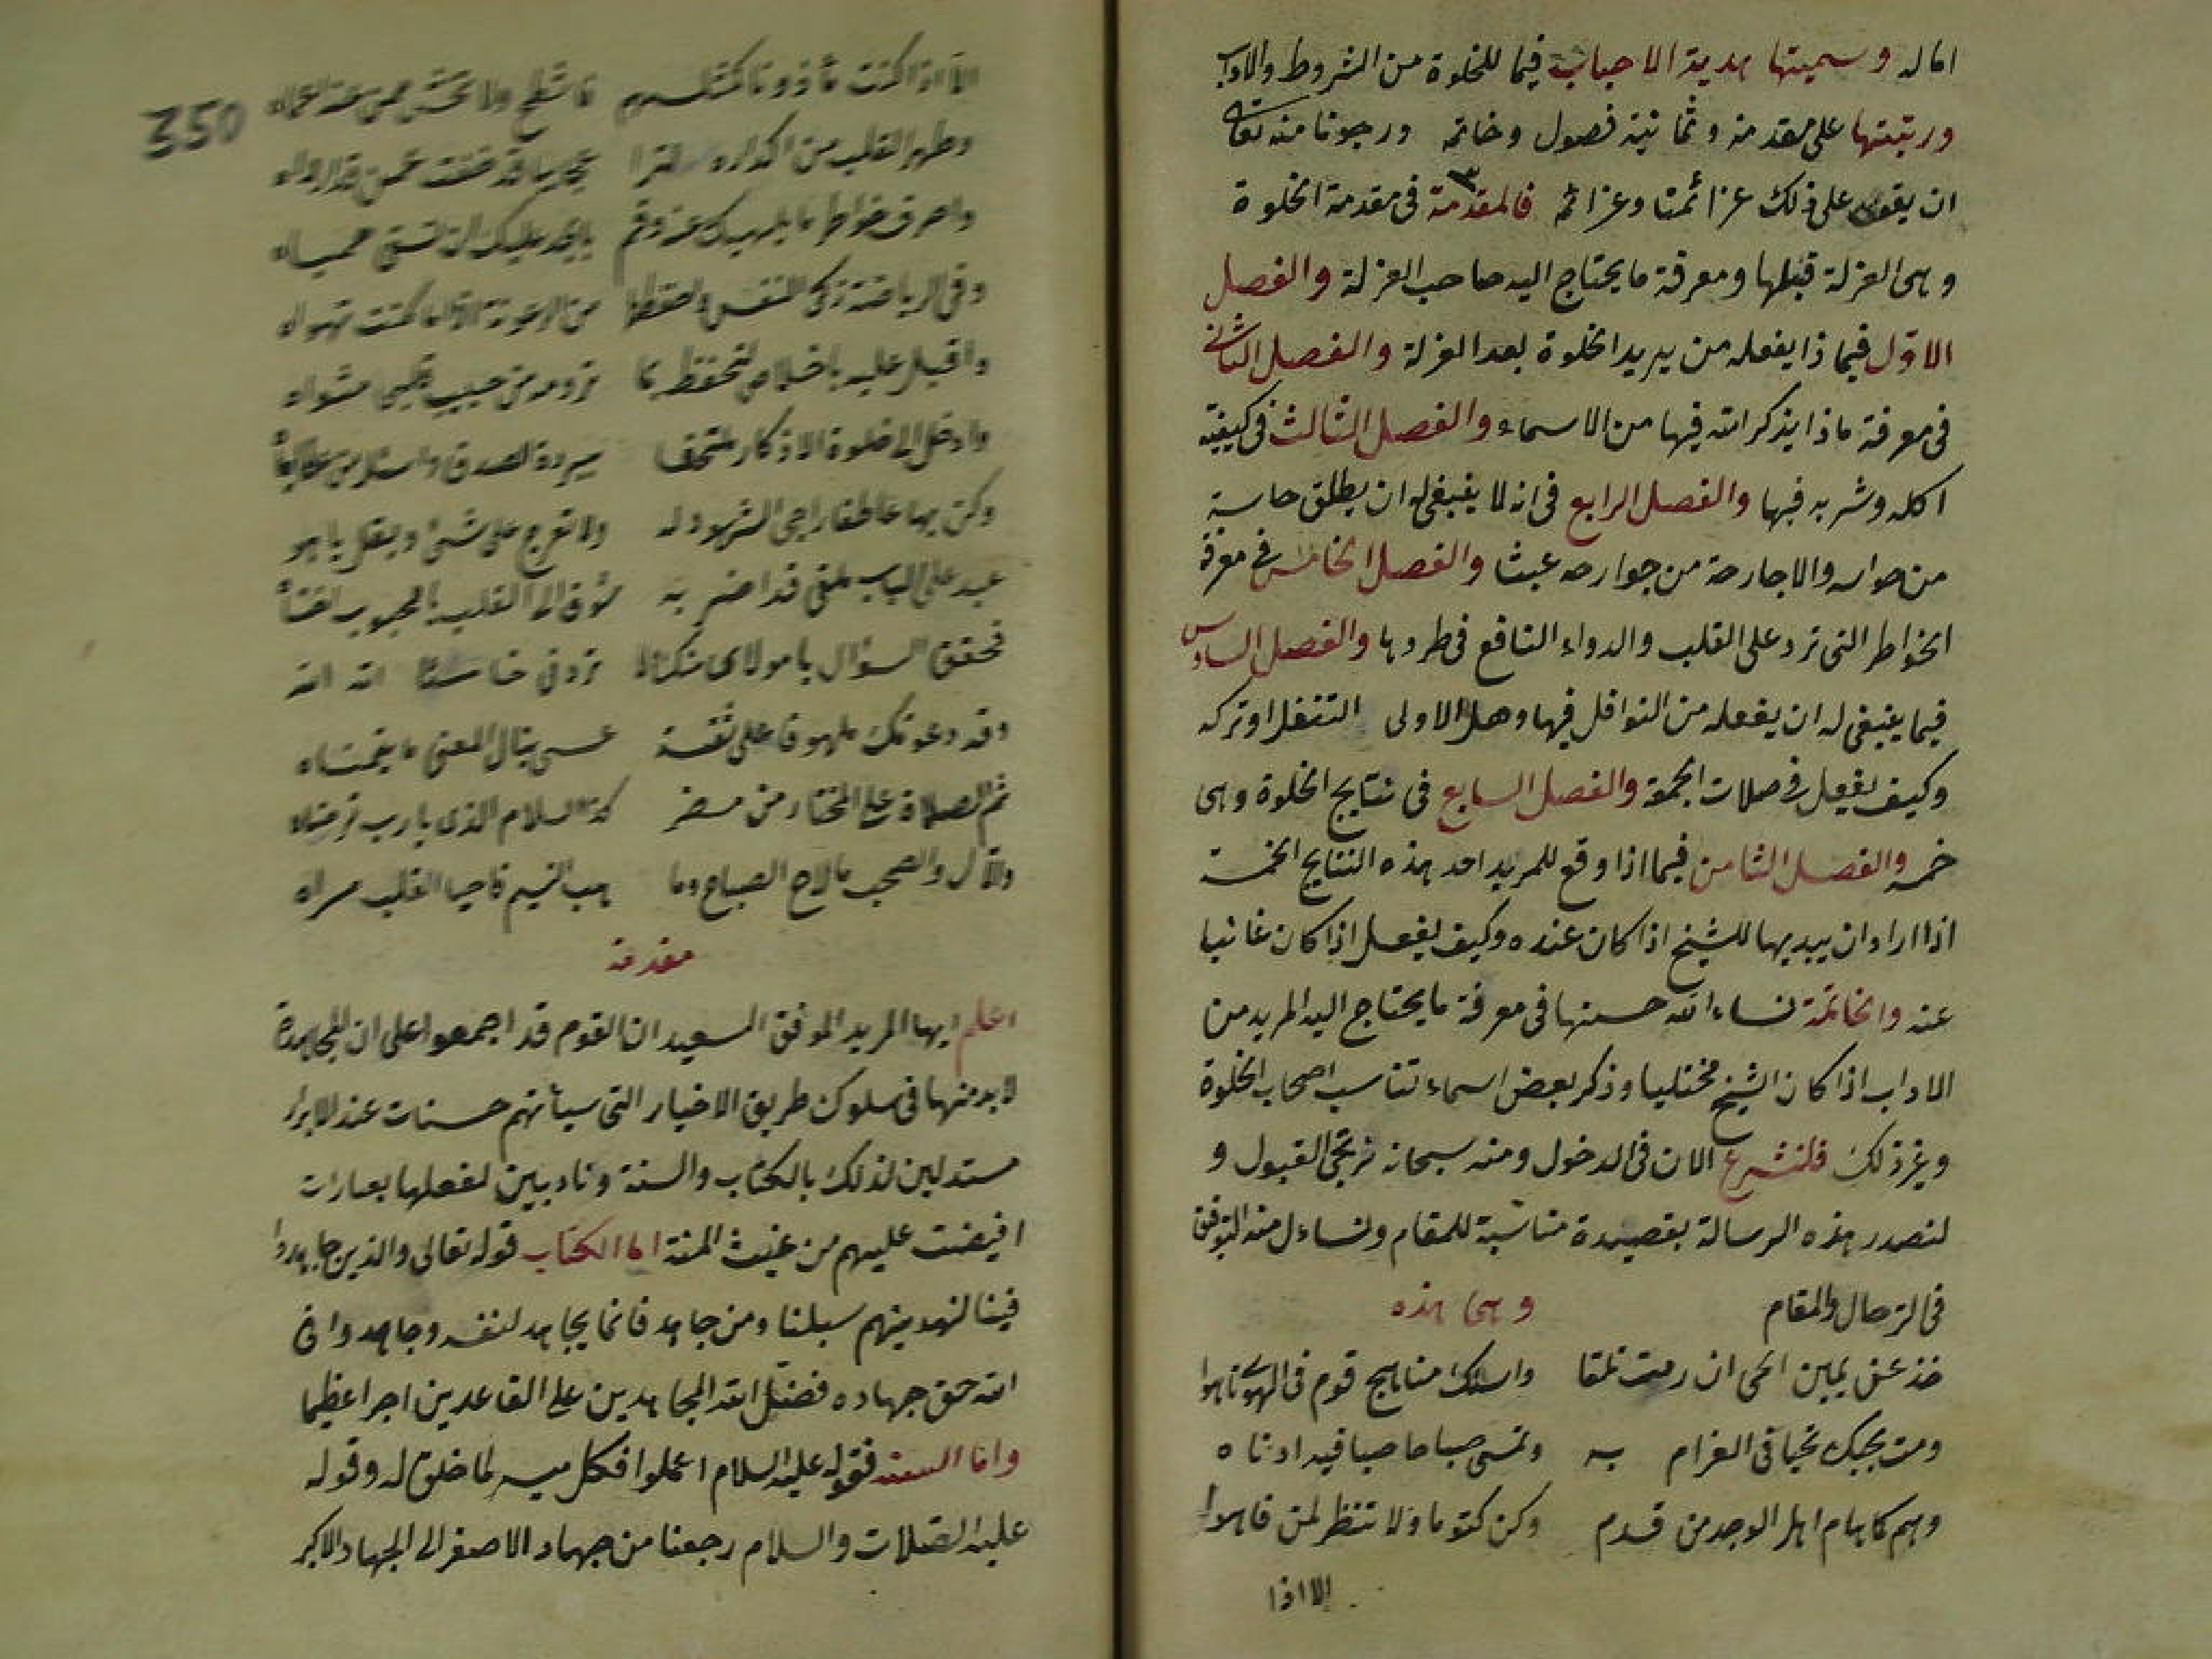 اماله وسميتها هدية الاحباب فيما للخلوة من الشروط والاداب
ورتبتها على مقدمة وثمانية فصول وخاتمه ورجونا منه تعالى
ان يقوى على ذلك عزائمنا وعزائمه فالمقدمة فى مقدمة الخلوة
وهى العزلة قبلها ومعرفة ما يحتاج اليه صاحب العزلة والفصل
الاول فيما ذا يفعله من يريد الخلوة بعد العزلة والفصل الثانى
فى معرفة ماذا يذكر الله فيها من الاسماء والفصل الثالث فى كيفية
اكله وشربه فيها والفصل الرابع فى انه لا ينبغى له ان يطلق حاسة
من حواسه والا جارحة من جوارحه عبثا والفصل الخامس فى معرفة
الخواطر التى ترد على القلب والدواء النافع فى طردها والفصل السادس
فيما ينبغى له ان يفعله من النوافل فيها وهل الاولى التنفل او تركه
وكيف يفعل فى صلات الجمعة والفصل السابع فى نتايج الخلوة وهى
خمسه والفصل الثامن فيما اذا وقع للمريد احد هذه النتايج الخمسة
اذا اراد ان يبديها للشيخ اذا كان عنده وكيف يفعل اذا كان غائبا
عنه والخاتمة نساء الله حسنها فى معرفة ما يحتاج اليه المريد من
الاداب اذا كان الشيخ مختليا وذكر بعض اسماء تناسب اصحاب الخلوة
وغير ذلك فلنشرع الان فى الدخول ومنه سبحانه نرتجى القبول و
لنصدر هذه الرسالة بقصيدة مناسبة للمقام ونساءل منه التوفيق
فى الترحال والمقام وهى هذه
خذ عن يمين الحى ان رمت تلقا واسلك مناهج قوم فى الهوى تاهوا
ومت بحبك تحيا فى الغرام به وتمسى صبا صاحبا فيه ادناه
وهم كما هام اهل الوجد من قدم وكن كتوما ولا تنظر لمن فاهوا
الا اذا
350
الا اذا كنت مأذونا كمثلهم فاشطح ولا تخش من عنه اعماه
وطهر القلب من اكداره لترا
واصرف خواطر ما يلهيك عنه وقم
وفى الرياضة زكى النفس من الرعونة الا ما كنت تهواه
واقبل عليه باخلاص لتحفظ بما ترومه من حبيب قلبى مثواه
وادخل الى خلوة الاذكار ملتحفا ببردة الصدق
وكن بها عاكفا راجى الشهود له ولا تعرج على شئ وبقل يا هو
عبد على الباب ملقى قد اضر به شوق الى القلب
فحقق السؤال يا مولاى الله الله
وقد دعوتك ملهوفا على ثقة عسى ينال المعنى ما يتمناه
ثم الصلاة على المختار من مضر كذا السلام الذى يارب ترضاه
والال والصحب ما لاح الصباح وما هب النسيم فاحيا القلب مسراه
مقدمة
اعلم ايها المريد الموفق السعيد ان القوم قد اجمعوا على ان المجاهدة
لا بد منها فى سلوك طريق الاخيار التى سيأتهم حسنات عند الابرار
مستدلين لذلك بالكتاب والسنة ونادبين لفعلها بعبارات
افيضت عليهم من غيث المنة اما الكتاب قوله تعالى والذين جاهدوا
فينا لنهدينهم سبلنا ومن جاهد فانما يجاهد لنفسه وجاهدوا فى
الله حق جهاده فضل الله المجاهدين على القاعدين اجرا عظيما
واما السنة فقوله عليه السلام اعملوا فكل ميسر لما خلق له وقوله
عليه الصلات والسلام رجعنا من جهاد الاصغر الى الجهاد الاكبر